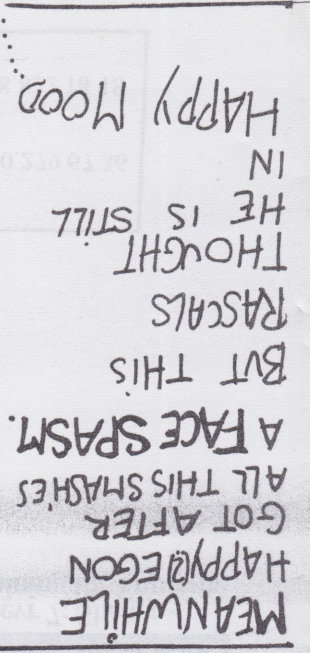 MEANWHILE
HAPPY(2)EGON
GOT AFTER
ALL THIS SMASHES
A FACE SPASM.
BUT THIS
RASCALS
THOUGHT
HE IS STILL
IN
HAPPY MOOD